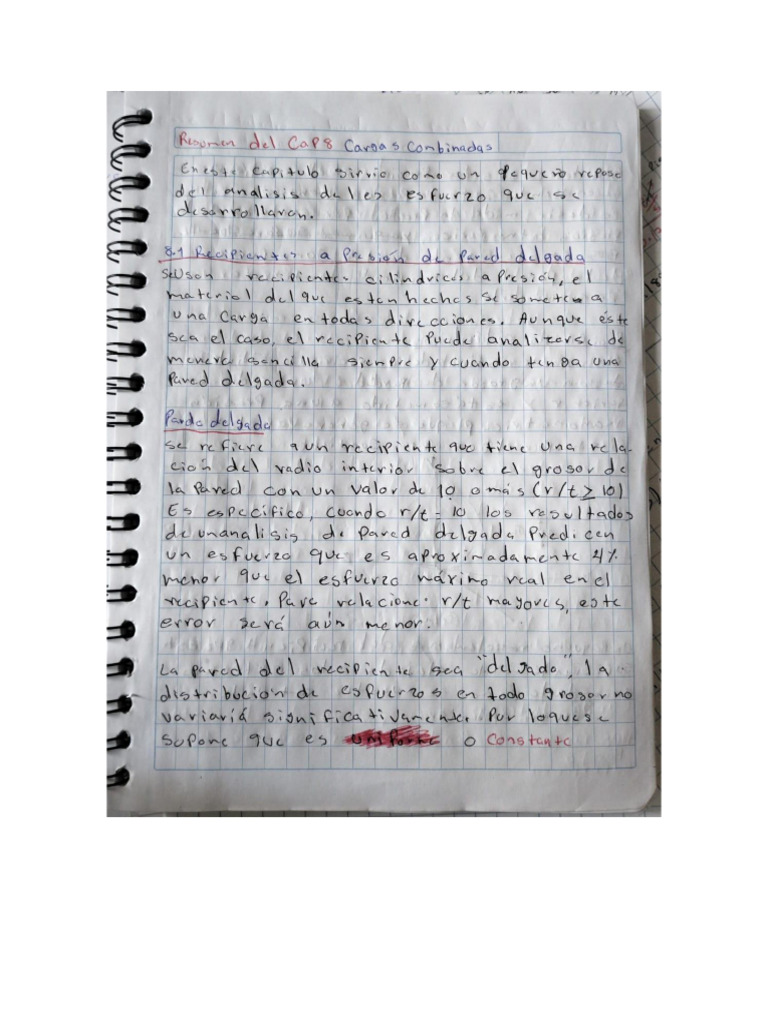 Resumen del CaP8 Cargas Combinadas
En este capitulo sirvio como un pequeño repaso
del analisis de les esfuerzo que se
desarrollaron.
8.1 Recipientes a Presión de Pared delgada
se usan recipientes cilindricos a Presión, el
material del que esten hechos se somete a
una Carga en todas direcciones. Aunque este
sea el caso, el recipiente Puede analizarse de
manera sencilla siempre y cuando tenga una
Pared delgada.
Parde delgada
se refiere a un recipiente que tiene una rela-
cion del radio interior sobre el grosor de
la Pared con un valor de 10 o más (r/t ≥ 10)
Es especifico, cuando r/t = 10 los resultados
de un analisis de Pared delgada Predicen
un esfuerzo que es aproximadamente 4%
menor que el esfuerzo máximo real en el
recipiente. Para relaciones r/t mayores, este
error será aún menor.
La pared del recipiente sea "delgado", la
distribucion de esfuerzos en todo grosor no
variará significativamente. Por lo que se
supone que es o Constante